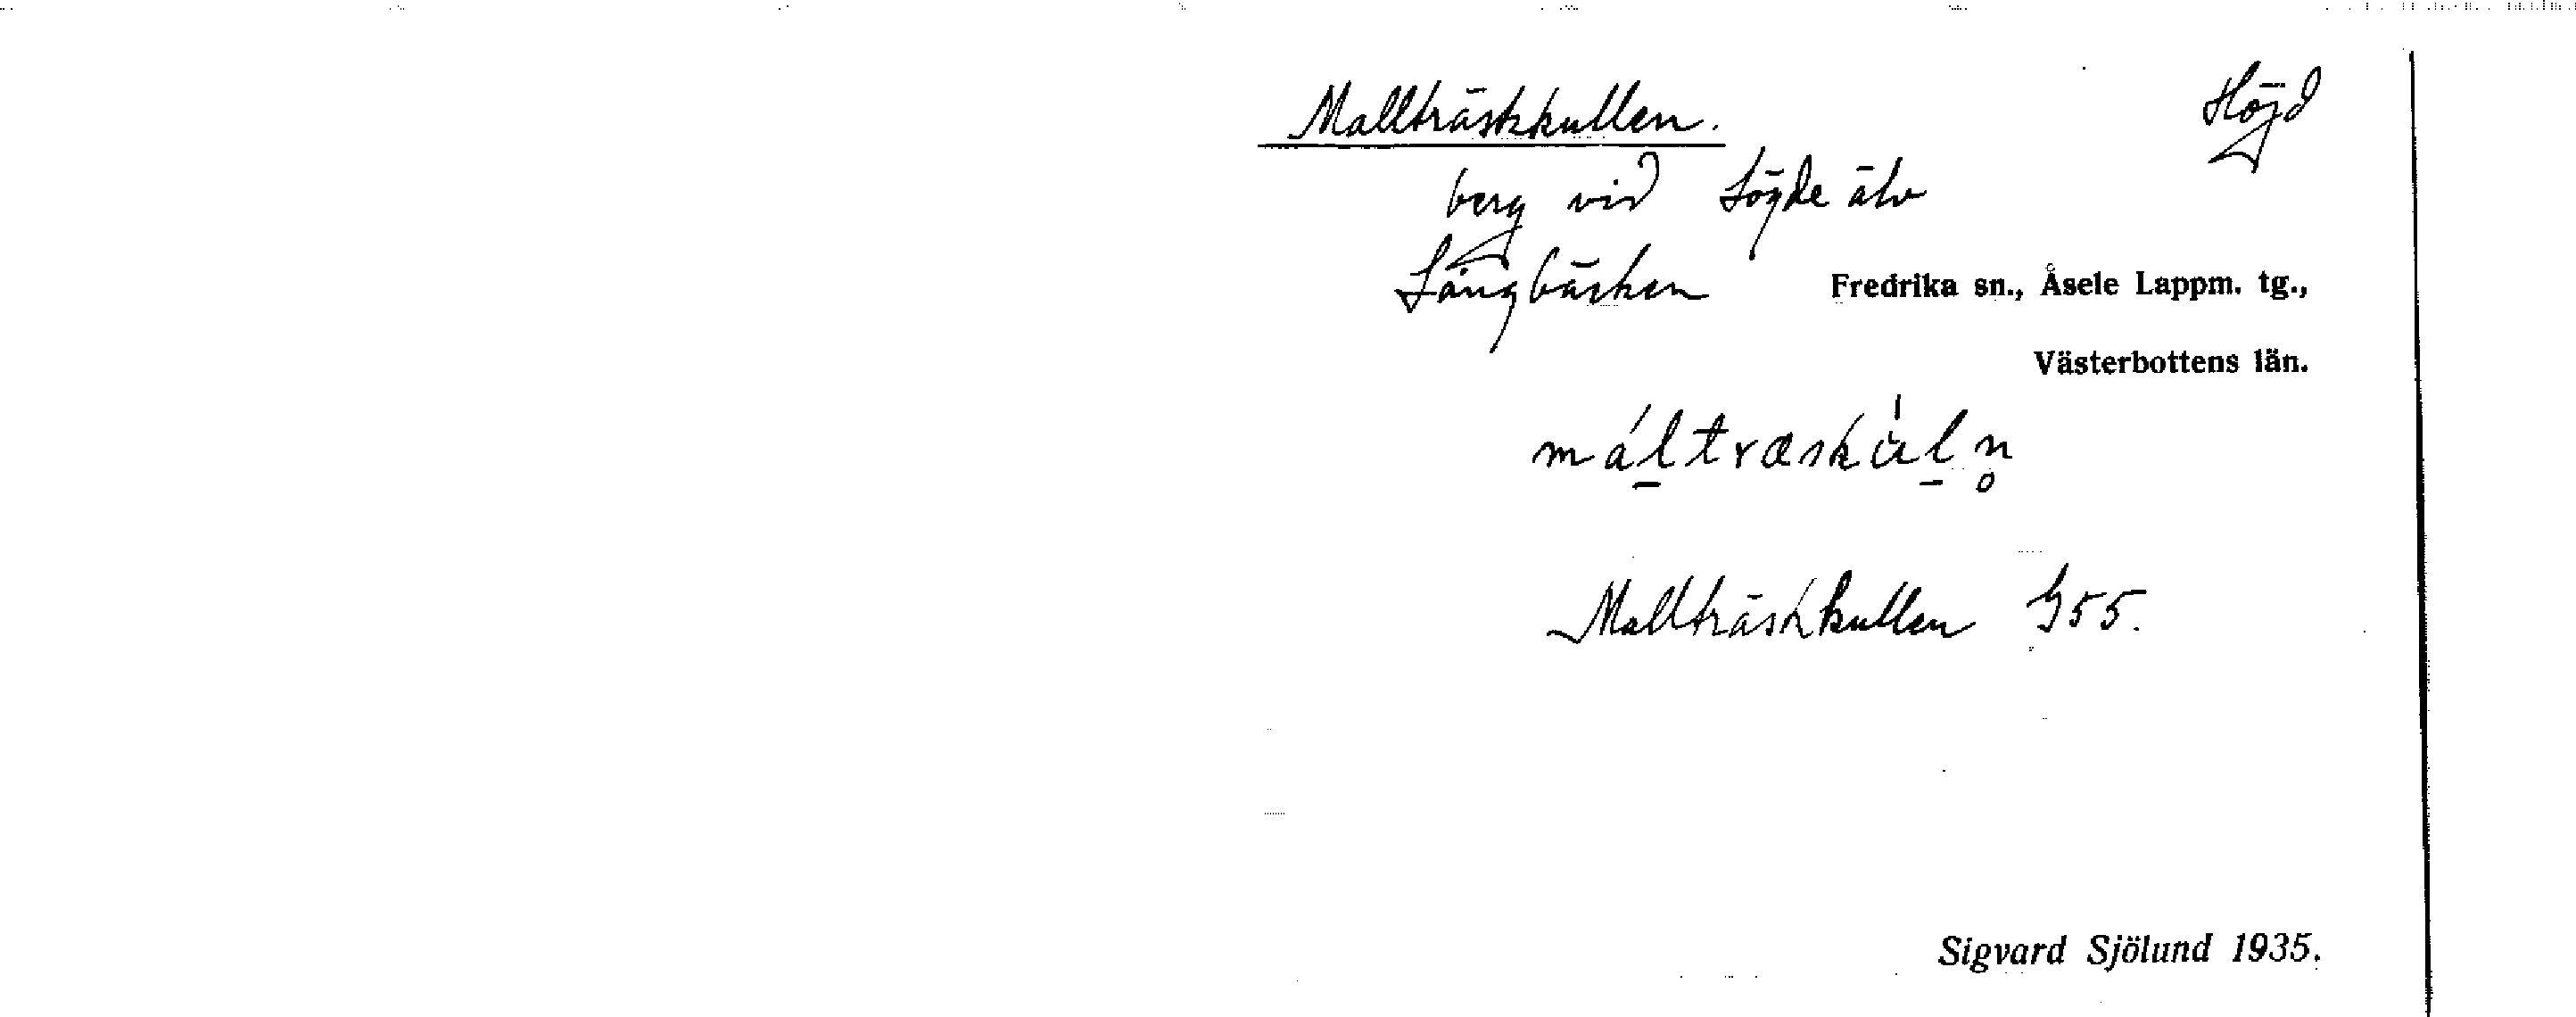 Mallträskkullen.
Höjd
berg vid Lögde älv
Långbäcken Fredrika sn., Åsele Lappm. tg.,
Västerbottens län.
máltræskùln̥
Mallträskkullen G55.
Sigvard Sjölund 1935.